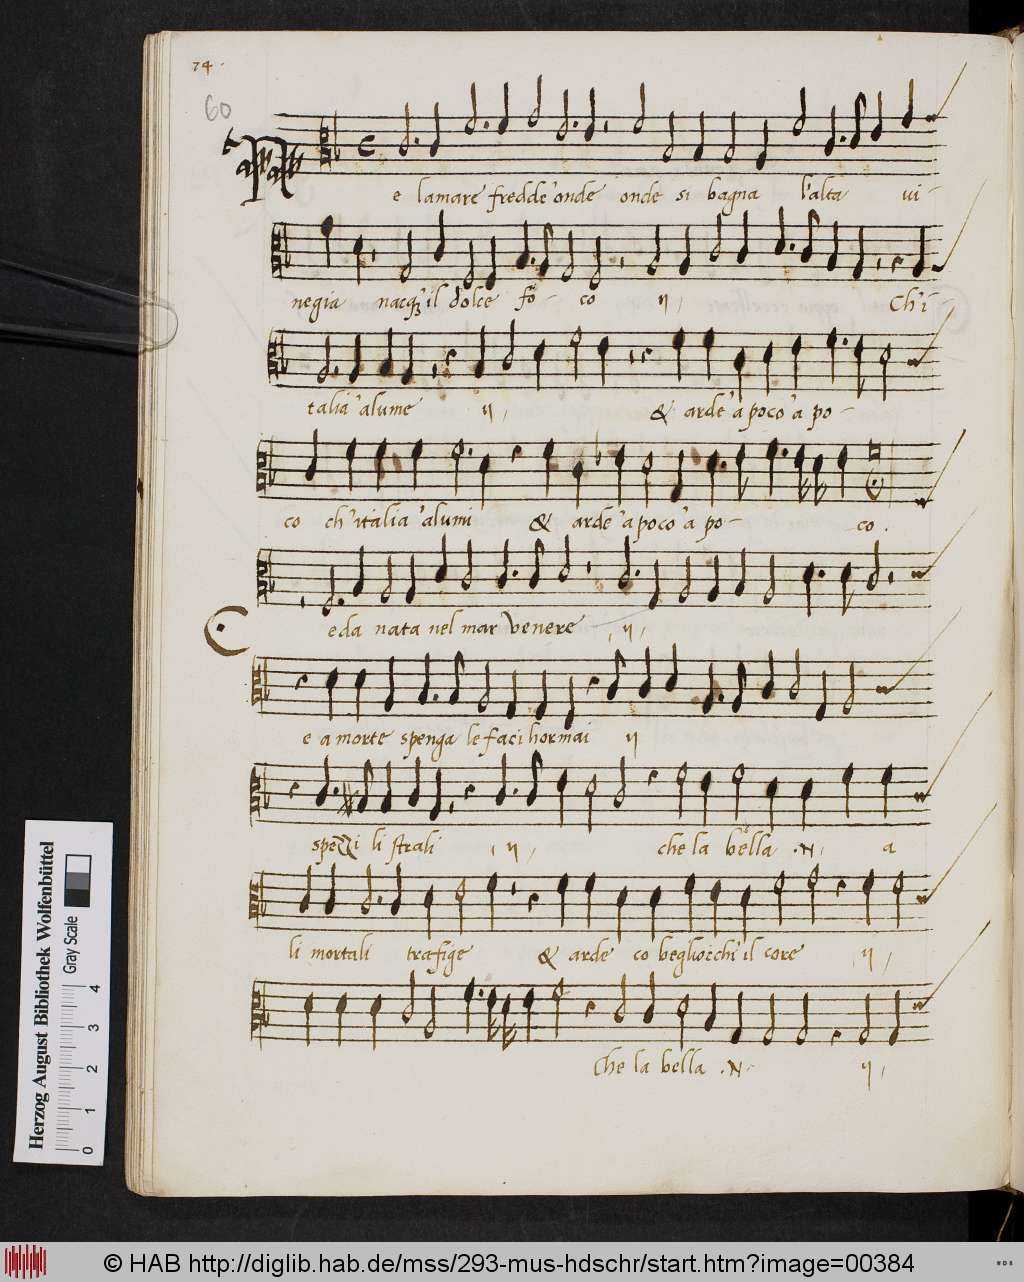 74.
60
e lamare fredde onde onde si bagna l'alta vi-
negia nacq; il dolce fo- co ij, Ch'i-
talia alume ij, & arde 'a poco 'a po-
co ch'italia 'alumi & arde 'a poco 'a po- co.
C eda nata nel mar venere, ij,
e a morte spenga le faci hormai ij
spezzi li strali , ij, che la bella .N. a
li mortali trafige & arde co begliocchi il core , ij,
che la bella .N. ij,
Herzog August Bibliothek Wolfenbüttel
Gray Scale
0 1 2 3 4
© HAB http://diglib.hab.de/mss/293-mus-hdschr/start.htm?image=00384